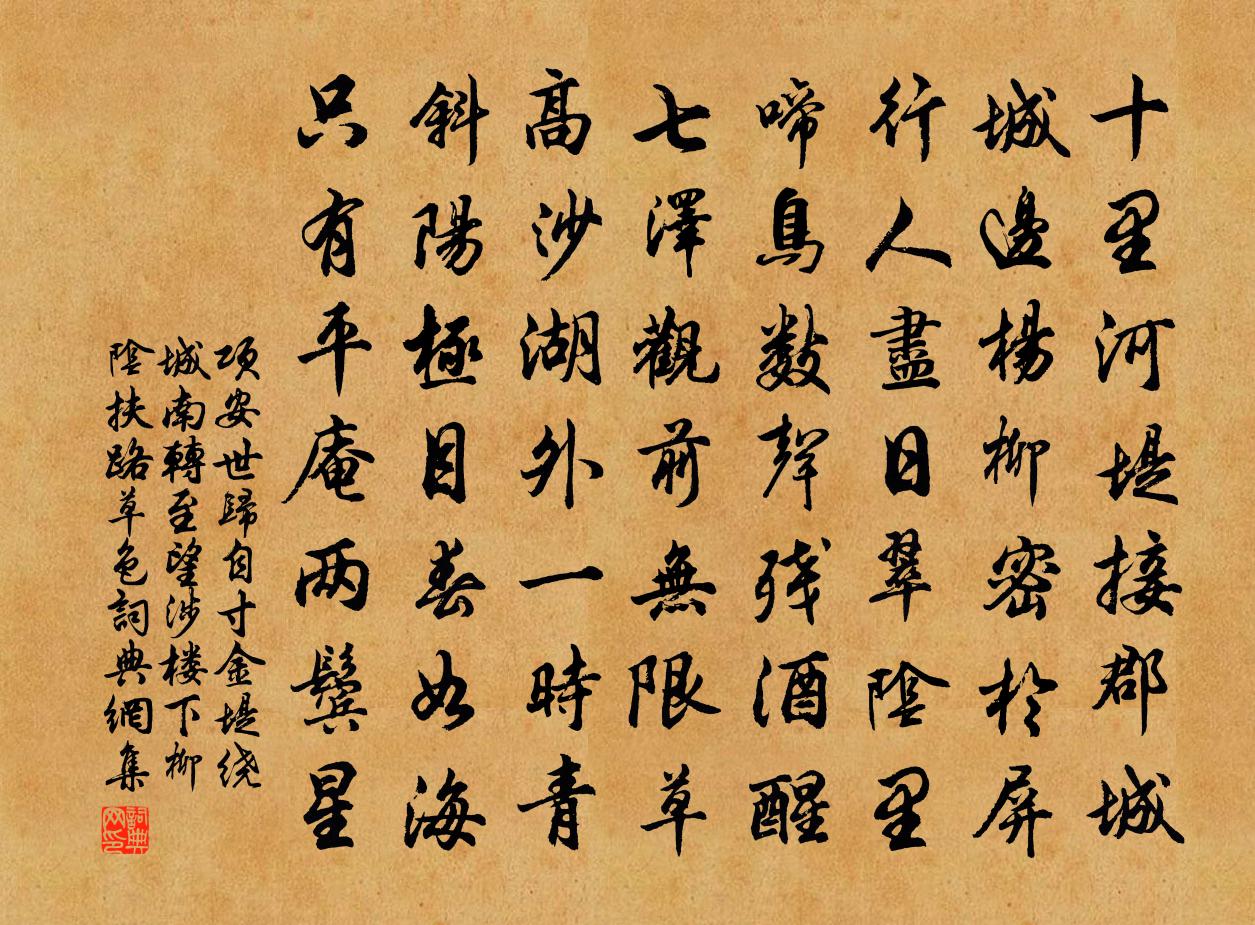 十里河堤接郡城
城邊楊柳密於屏
行人盡日翠陰里
啼鳥數聲殘酒醒
七澤觀前無限草
高沙湖外一時青
斜陽極目春如海
只有平庵两鬢星
項安世歸自寸金堤繞
城南轉至望涉楼下柳
陰扶路草色詞典網集
詞典网印